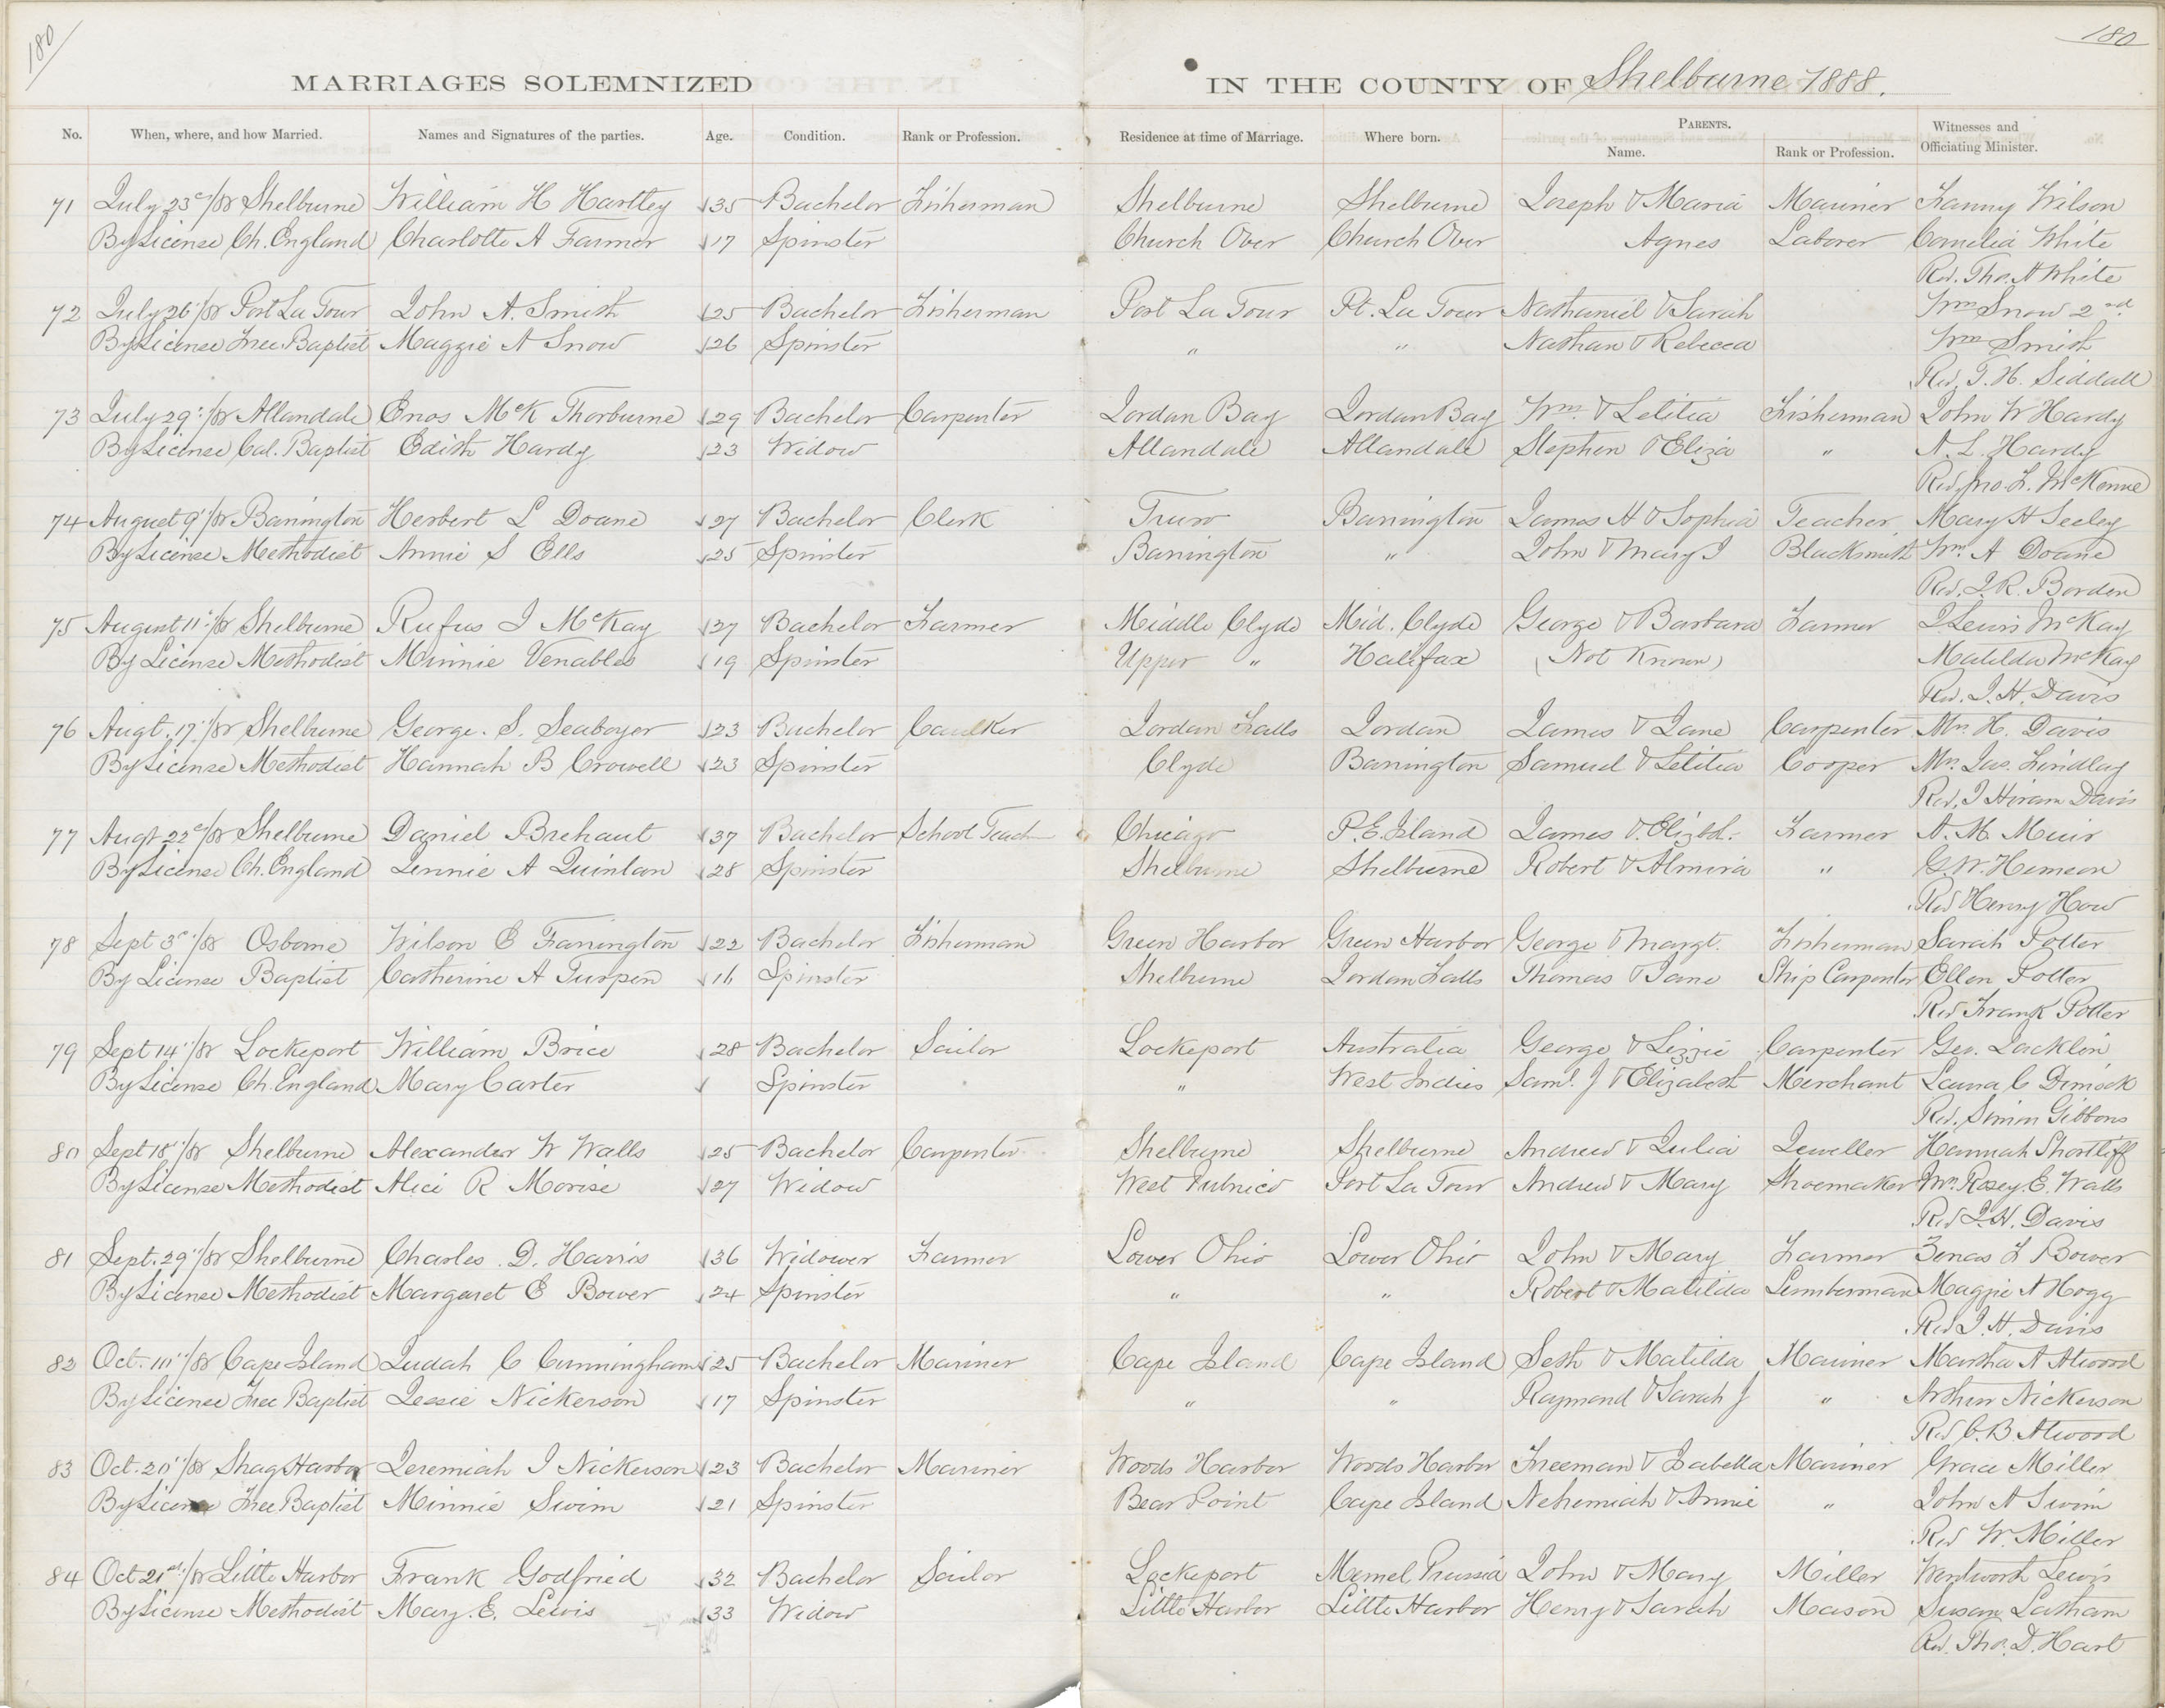 180
180
MARRIAGES SOLEMNIZED IN THE COUNTY OF Shelburne 1888.
No. When, where, and how Married. Names and Signatures of the parties. Age. Condition. Rank or Profession. Residence at time of Marriage. Where born. PARENTS. Name. Rank or Profession. Witnesses and Officiating Minister.
71 July 23d/88 Shelburne William H Hartley 35 Bachelor Fisherman Shelburne Shelburne Joseph & Maria Mariner Fanny Wilson
By License Ch. England Charlotte A Farmer 17 Spinster Church Over Church Over Agnes Laborer Cornelia White
Rev. Tho. H White
72 July 26"/88 Port La Tour John A. Smith 25 Bachelor Fisherman Port La Tour Pt. La Tour Nathaniel & Sarah Wm Snow 2nd
By License Free Baptist Maggie A Snow 26 Spinster " " Nathan & Rebecca Wm Smith
Rev. T. H. Siddall
73 July 29"/88 Allandale Enos McK Thorburne 29 Bachelor Carpenter Jordan Bay Jordan Bay Wm. & Letitia Fisherman John W Hardy
By License Cal. Baptist Edith Hardy 23 Widow Allandale Allandale Stephen & Eliza " A. L. Hardy
Rev. Jno. L. McKenne
74 August 9"/88 Barrington Herbert L Doane 27 Bachelor Clerk Truro Barrington James H & Sophia Teacher Mary H Seeley
By License Methodist Annie S Ells 25 Spinster Barrington " John & Mary J Blacksmith Wm. A Doane
Rev. J. R. Borden
75 August 11"/88 Shelburne Rufus I McKay 37 Bachelor Farmer Middle Clyde Mid. Clyde George & Barbara Farmer J Lewis McKay
By License Methodist Minnie Venables 19 Spinster Upper " Halifax (Not Known) Matilda McKay
Rev. J. H. Davis
76 Augt. 17"/88 Shelburne George. S. Seaboyer 23 Bachelor Caulker Jordan Falls Jordan James & Jane Carpenter Mrs H. Davis
By License Methodist Hannah B Crowell 23 Spinster Clyde Barrington Samuel & Letitia Cooper Mrs. Jas. Findlay
Rev. J Hiram Davis
77 Augt 22d/88 Shelburne Daniel Brehaut 37 Bachelor School Teach Chicago P. E. Island James & Elizbt. Farmer A. M. Muir
By License Ch. England Jennie A Quinlan 28 Spinster Shelburne Shelburne Robert & Almira " G. W. Hemeon
Rev Henry How
78 Sept 3rd/88 Osborne Wilson E Farrington 22 Bachelor Fisherman Green Harbor Green Harbor George & Margt. Fisherman Sarah Potter
By License Baptist Catherine A Turpen 16 Spinster Shelburne Jordan Falls Thomas & Jane Ship Carpenter Ellen Potter
Rev Frank Potter
79 Sept 14"/88 Lockeport William Brice 28 Bachelor Sailor Lockeport Australia George & Lizzie Carpenter Geo. Lacklin
By License Ch. England Mary Carter Spinster " West Indies Saml. J & Elizabeth Merchant Launa C Dimock
Rev. Simon Gibbons
80 Sept 18"/88 Shelburne Alexander W Walls 25 Bachelor Carpenter Shelburne Shelburne Andrew & Julia Jeweller Hannah Shortliff
By License Methodist Alice R Morise 27 Widow West Pubnico Port La Tour Andrew & Mary Shoemaker Mrs. Rosey. E. Walls
Rev J. H. Davis
81 Sept. 29"/88 Shelburne Charles. D. Harris 36 Widower Farmer Lower Ohio Lower Ohio John & Mary Farmer Zenas F Bower
By License Methodist Margaret E Bower 24 Spinster " " Robert & Matilda Lumberman Maggie A Hogg
Rev J. H. Davis
82 Oct. 10"/88 Cape Island Judah C Cunningham 25 Bachelor Mariner Cape Island Cape Island Seth & Matilda Mariner Martha A Atwood
By License Free Baptist Jessie Nickerson 17 Spinster " " Raymond & Sarah J " Arthur Nickerson
Rev C. B. Atwood
83 Oct. 20"/88 Shag Harbor Jeremiah I Nickerson 23 Bachelor Mariner Woods Harbor Woods Harbor Freeman & Isabella Mariner Grace Miller
By License Free Baptist Minnie Swim 21 Spinster Bear Point Cape Island Nehemiah & Annie " John A Swim
Rev W. Miller
84 Oct 21st/88 Little Harbor Frank Godfried 32 Bachelor Sailor Lockeport Memel Prussia John & Mary Miller Wentworth Lewis
By License Methodist Mary. E. Lewis 33 Widow Little Harbor Little Harbor Henry & Sarah Mason Susan Latham
Rev. Tho. D. Hart